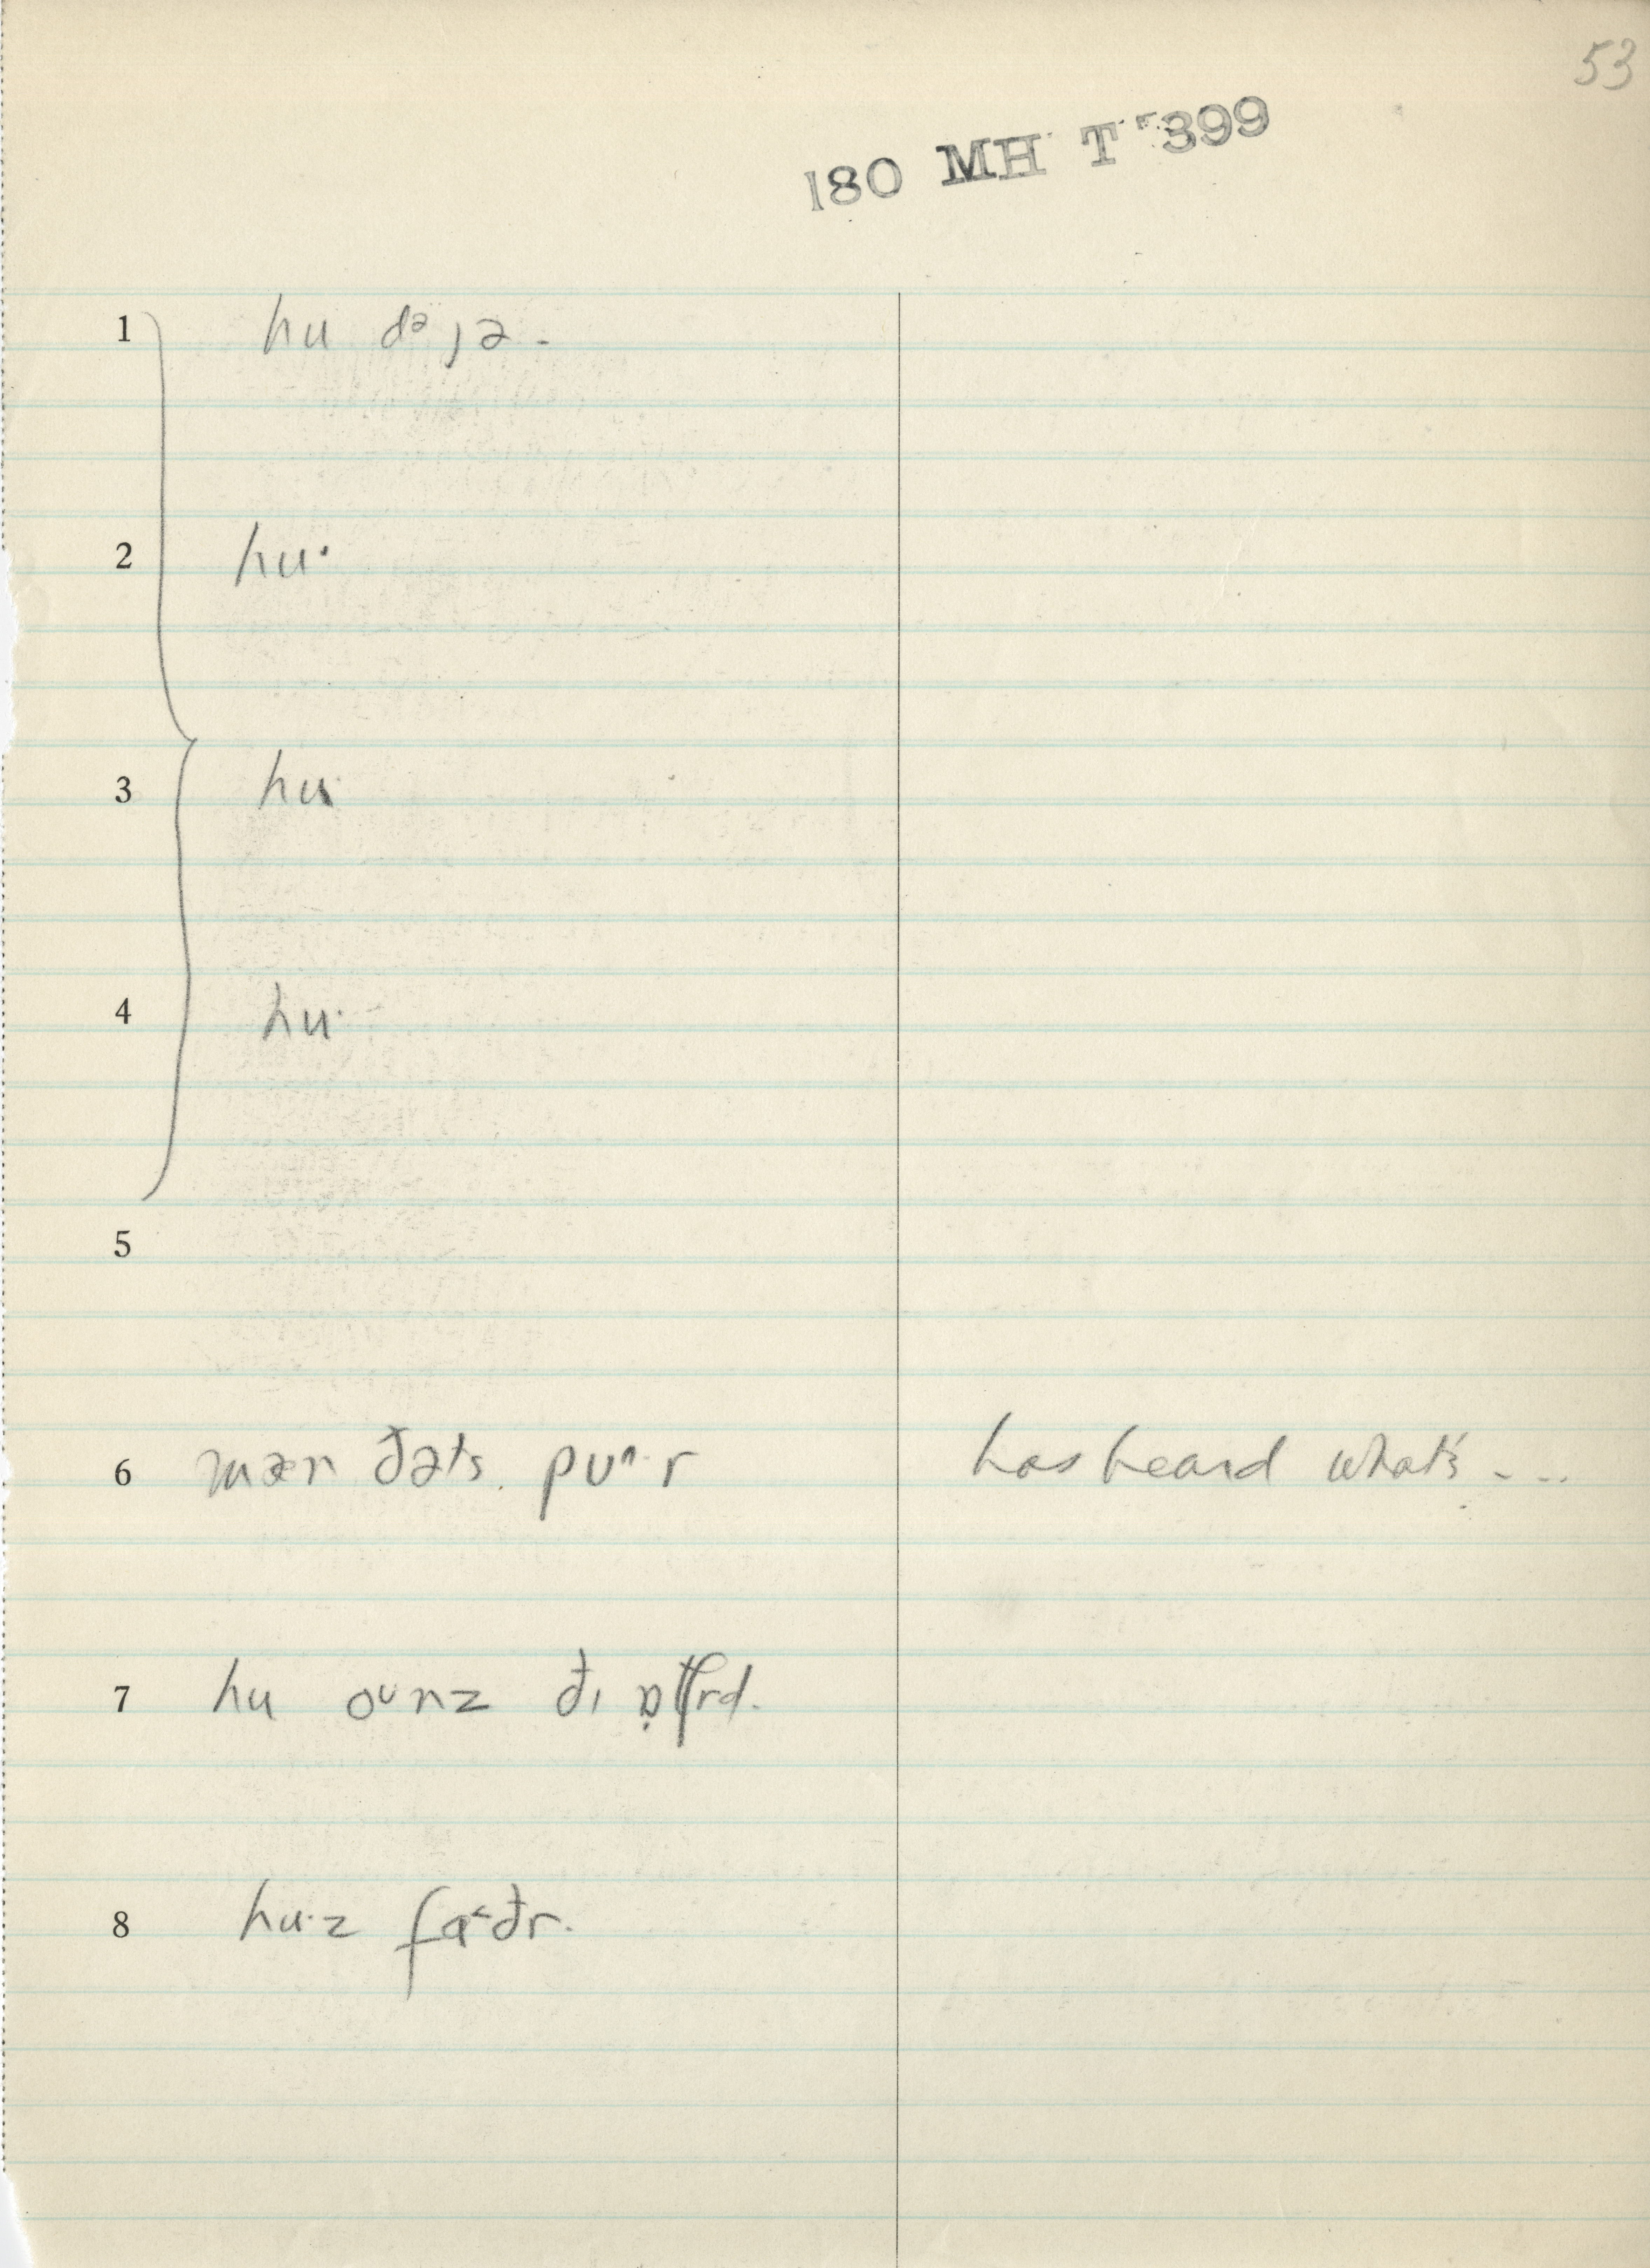 53
180 MH T 399
1 hu dᵊ ȷə -
2 hu·
3 hu·
4 hu·
5
6 mæn ðəts pʊᴧ·r has heard what's - - -
7 hu oᶷnz ðɪ
8 hu·z fɑ˂ðr.